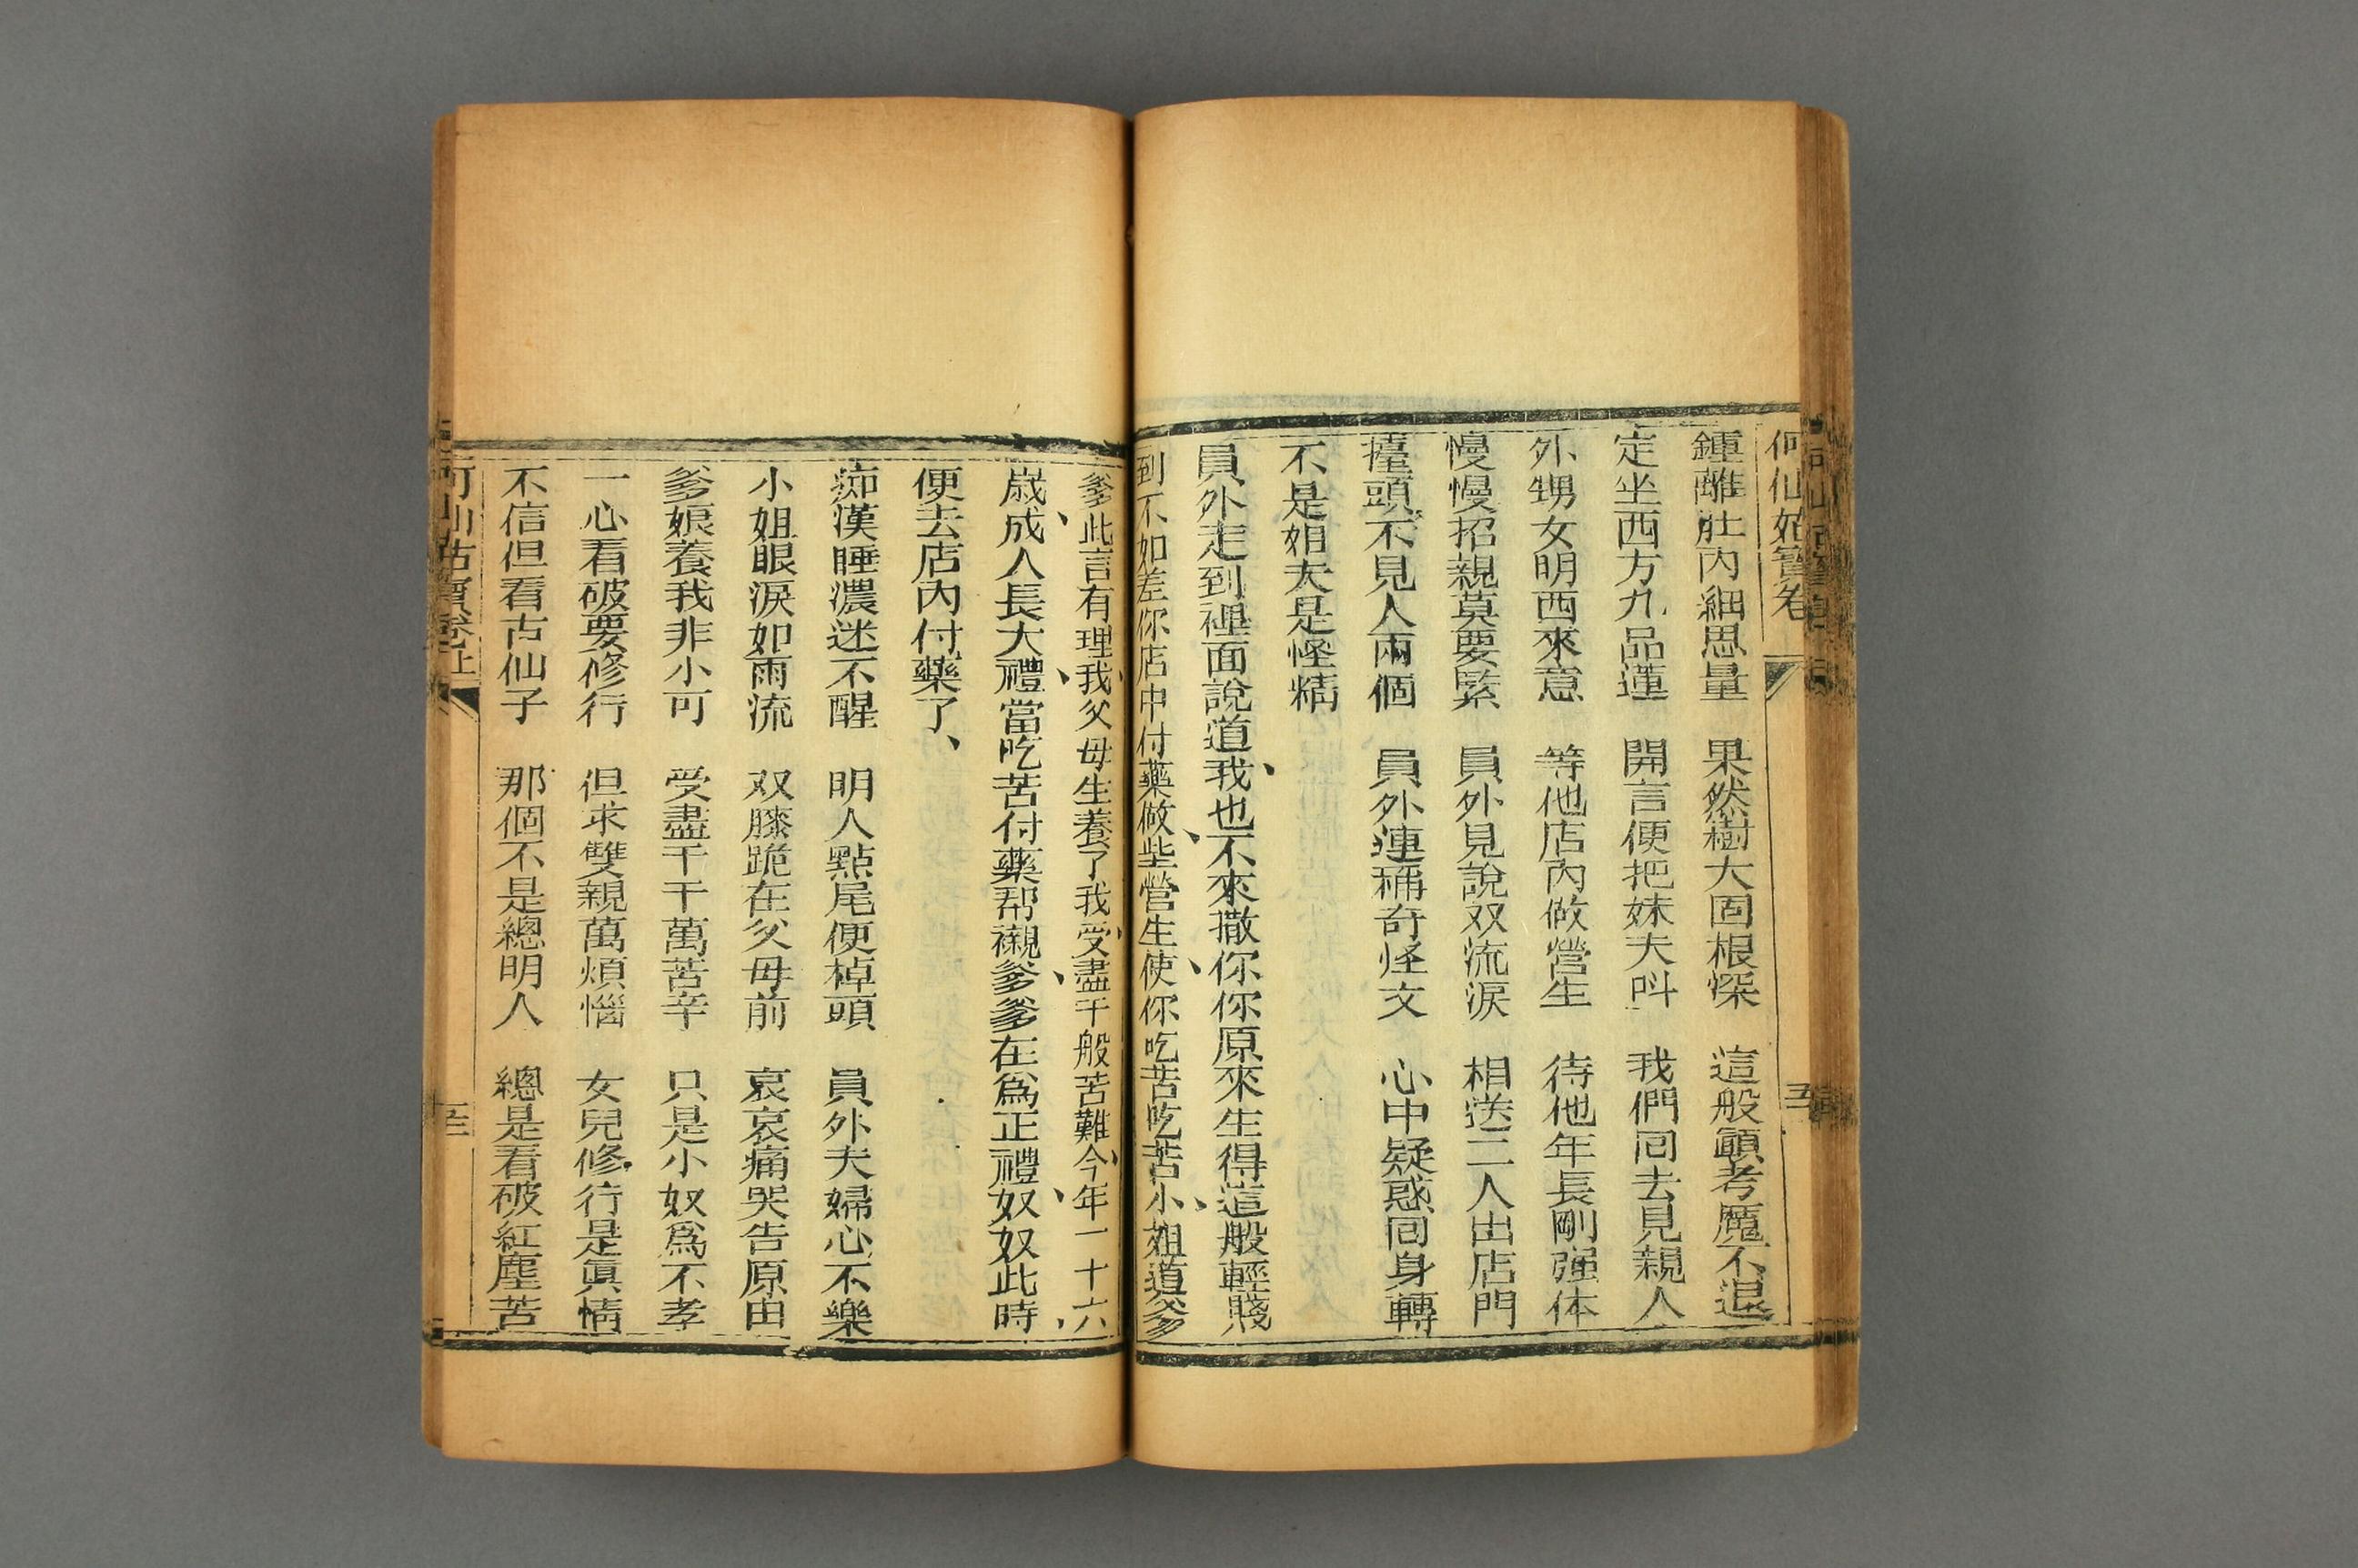 何仙姑寳卷
五
鍾離肚內細思量 果然樹大固根深 這般顧考魔不退
定坐西方九品蓮 開言便把妹夫叫 我們囘去見親人
外甥女明西來意 等他店內做營生 待他年長剛强体
慢慢招親莫要緊 員外見說双流淚 相送二人出店門
擡頭不見人兩個 員外連稱奇怪文 心中疑惑囘身轉
不是妲夫是怪精
員外走到裡面說道、我也不來撒你你原來生得這般輕賤
到不如差你店中付藥做、些營生、使你吃苦吃苦、小姐道爹
爹此言有理、我父母生養了我受、盡千般苦難今、年一十六、
歲、成人長大禮、當吃苦付藥帮襯、爹爹在爲正禮、奴奴此時
便去店內付藥了、
痴漢睡濃迷不醒 明人點尾便棹頭 員外夫婦心不樂
小姐眼淚如雨流 双膝跪在父母前 哀哀痛哭告原由
爹娘養我非小可 受盡千千萬苦辛 只是小奴爲不孝
一心看破要修行 但求雙親萬煩惱 女兒修行是眞情
不信但看古仙子 那個不是總明人 總是看破紅塵苦
何仙姑寳卷上